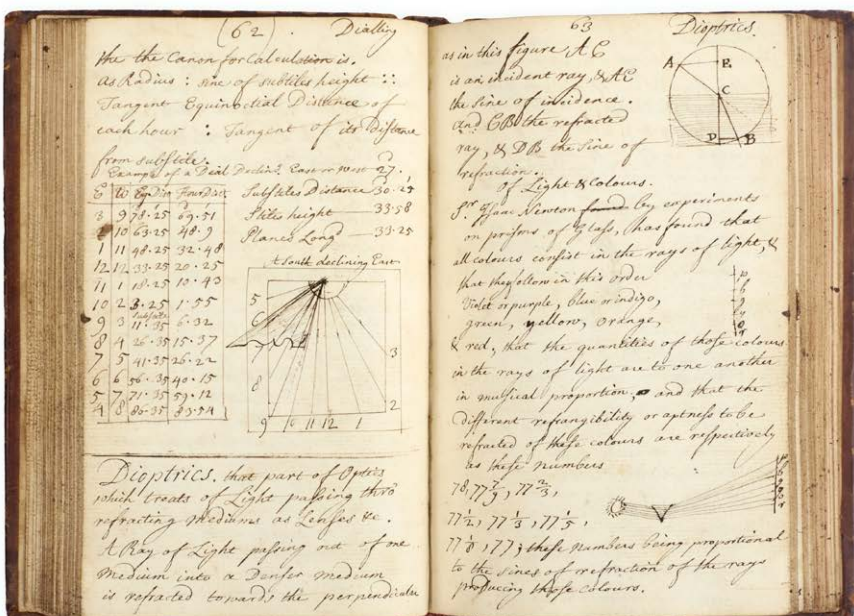 (62). Dialling
the the Canon for Calculation is.
As Radius : sine of substiles height ::
Tangent Equinoctial Distance of
each hour : Tangent of its Distance
from substile.
Example of a Dial Declin. East or West 27.
E W Eq. Dist Hour Dist.
3 9 78.25 69.51
2 10 63.25 48.9
1 11 48.25 32.48
12 12 33.25 20.25
11 1 18.25 10.43
10 2 3.25 1.55
Substile
9 3 11.35 6.32
8 4 26.35 15.37
7 5 41.35 26.22
6 6 56.35 40.15
5 7 71.35 59.12
4 8 86.35 83.54
Substiles Distance 30.25
Stiles height 33.58
Planes Long 33.25
A South declining East
5
6
7
8
9 10 11 12 1
2
3
Dioptrics. that part of Optics
which treats of Light passing thro
refracting mediums as Lenses &c.
A Ray of Light passing out of one
Medium into a Denser medium
is refracted towards the perpendicular
63 Dioptrics.
as in this figure A C
is an incident ray, & AE
the Sine of incidence.
and CB the refracted
ray, & DB the Sine of
refraction.
A E
C
D B
of Light & Colours.
Sr. Isaac Newton found by experiments
on prisms of Glass, has found that
all colours consist in the rays of light, &
that they follow in this order
Violet or purple, blue or indigo,
green, yellow, orange,
& red, that the quantities of those colours
in the rays of light are to one another
in musical proportion, and that the
different refrangibility or aptness to be
refracted of these colours are respectively
as these numbers
78, 77 7/9, 77 2/3,
77 1/2, 77 1/3, 77 1/5,
77 1/8, 77; these numbers being proportional
to the sines of refraction of the rays
producing those colours.